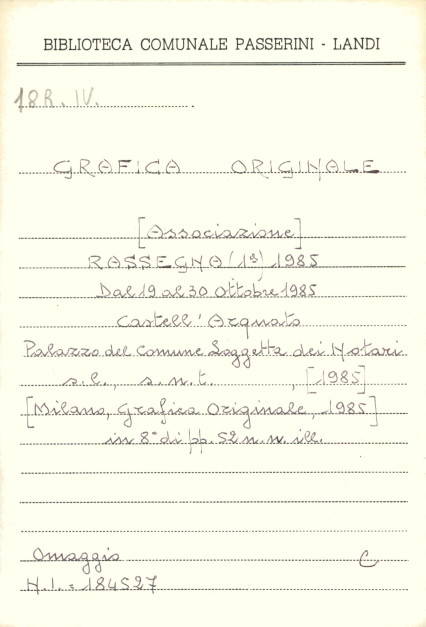 BIBLIOTECA COMUNALE PASSERINI - LANDI
18R. IV.
GRAFICA ORIGINALE
[Associazione]
RASSEGNA (1ª) 1985
Dal 19 al 30 Ottobre 1985
Castell'Arquato
Palazzo del Comune Loggetta dei Notari
s.l., s.n.t. , [1985]
[Milano, Grafica Originale, 1985]
in 8° di pp. 52 n.n. ill.
Omaggio C
N.I. = 184527